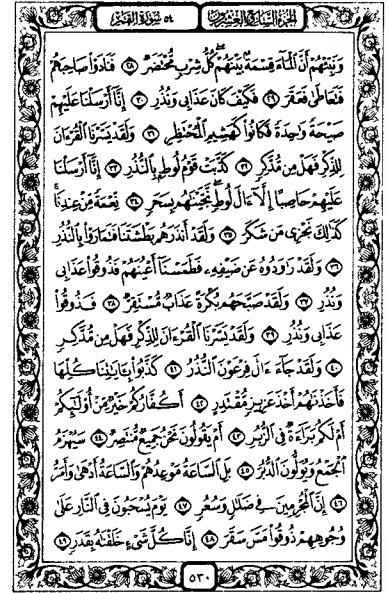 الجزء السابع والعشرون ٥٤ سورة القمر
وَنَبِّئْهُمْ أَنَّ ٱلْمَآءَ قِسْمَةٌۢ بَيْنَهُمْ كُلُّ شِرْبٍ مُّحْتَضَرٌ ٢٨ فَنَادَوْا۟ صَاحِبَهُمْ
فَتَعَاطَىٰ فَعَقَرَ ٢٩ فَكَيْفَ كَانَ عَذَابِى وَنُذُرِ ٣٠ إِنَّآ أَرْسَلْنَا عَلَيْهِمْ
صَيْحَةً وَٰحِدَةً فَكَانُوا۟ كَهَشِيمِ ٱلْمُحْتَظِرِ ٣١ وَلَقَدْ يَسَّرْنَا ٱلْقُرْءَانَ
لِلذِّكْرِ فَهَلْ مِن مُّدَّكِرٍ ٣٢ كَذَّبَتْ قَوْمُ لُوطٍۭ بِٱلنُّذُرِ ٣٣ إِنَّآ أَرْسَلْنَا
عَلَيْهِمْ حَاصِبًا إِلَّآ ءَالَ لُوطٍ نَّجَّيْنَٰهُم بِسَحَرٍ ٣٤ نِّعْمَةً مِّنْ عِندِنَا
كَذَٰلِكَ نَجْزِى مَن شَكَرَ ٣٥ وَلَقَدْ أَنذَرَهُم بَطْشَتَنَا فَتَمَارَوْا۟ بِٱلنُّذُرِ
٣٦ وَلَقَدْ رَٰوَدُوهُ عَن ضَيْفِهِۦ فَطَمَسْنَآ أَعْيُنَهُمْ فَذُوقُوا۟ عَذَابِى
وَنُذُرِ ٣٧ وَلَقَدْ صَبَّحَهُم بُكْرَةً عَذَابٌ مُّسْتَقِرٌّ ٣٨ فَذُوقُوا۟
عَذَابِى وَنُذُرِ ٣٩ وَلَقَدْ يَسَّرْنَا ٱلْقُرْءَانَ لِلذِّكْرِ فَهَلْ مِن مُّدَّكِرٍ
٤٠ وَلَقَدْ جَآءَ ءَالَ فِرْعَوْنَ ٱلنُّذُرُ ٤١ كَذَّبُوا۟ بِـَٔايَٰتِنَا كُلِّهَا
فَأَخَذْنَٰهُمْ أَخْذَ عَزِيزٍ مُّقْتَدِرٍ ٤٢ أَكُفَّارُكُمْ خَيْرٌ مِّنْ أُو۟لَٰٓئِكُمْ
أَمْ لَكُم بَرَآءَةٌ فِى ٱلزُّبُرِ ٤٣ أَمْ يَقُولُونَ نَحْنُ جَمِيعٌ مُّنتَصِرٌ ٤٤ سَيُهْزَمُ
ٱلْجَمْعُ وَيُوَلُّونَ ٱلدُّبُرَ ٤٥ بَلِ ٱلسَّاعَةُ مَوْعِدُهُمْ وَٱلسَّاعَةُ أَدْهَىٰ وَأَمَرُّ
٤٦ إِنَّ ٱلْمُجْرِمِينَ فِى ضَلَٰلٍ وَسُعُرٍ ٤٧ يَوْمَ يُسْحَبُونَ فِى ٱلنَّارِ عَلَىٰ
وُجُوهِهِمْ ذُوقُوا۟ مَسَّ سَقَرَ ٤٨ إِنَّا كُلَّ شَىْءٍ خَلَقْنَٰهُ بِقَدَرٍ ٤٩
٥٣٠